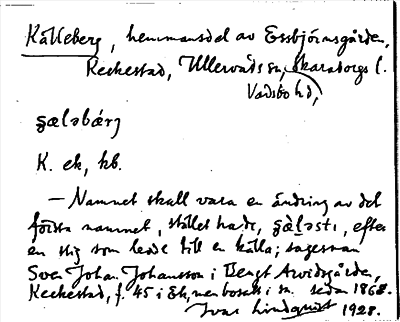 Källeberg, hemmansdel av Esbjörnsgården,
Reckestad, Ullervads sn, Skaraborgs l.
Vadsbo hd,
K. ek, kb.
— Namnet skall vara en ändring av det
första namnet, stället hade, efter
en stig som ledde till en källa; sagesman
Sven Johan Johansson i Bengt Arvidsgården,
Reckestad, f. 45 i Ek, men bosatt i sn. sedan 1868.
Ivar Lindquist 1928.